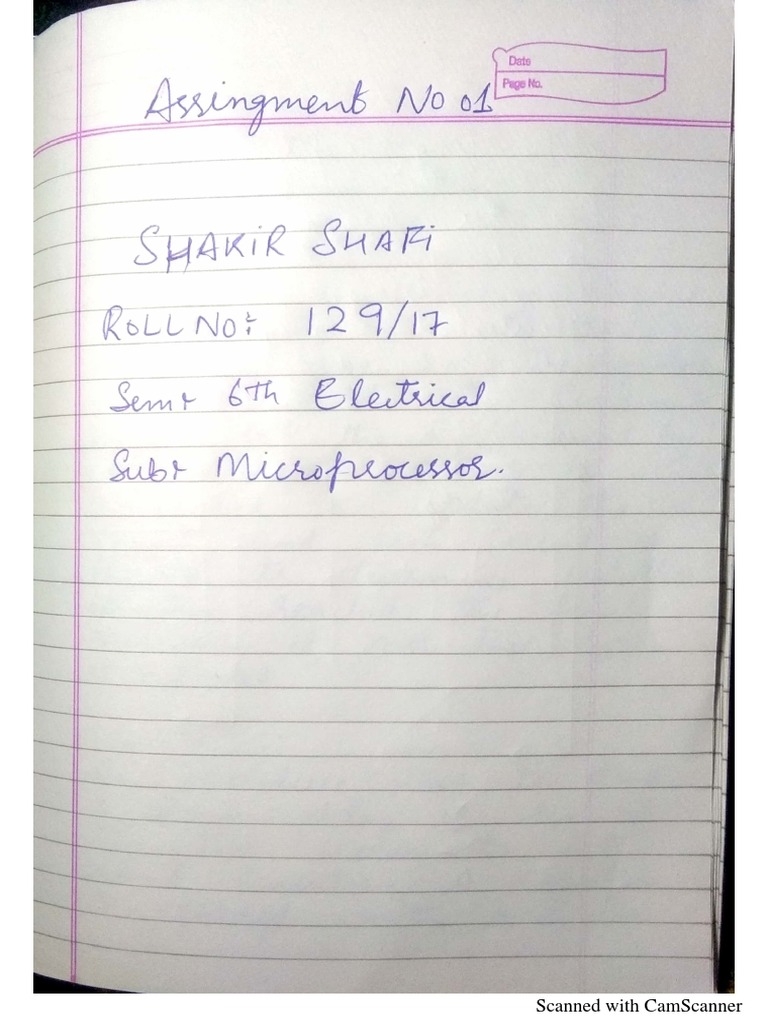 Date
Page No.
Assingment No 01
SHAKIR SHAFI
ROLL NO: 129/17
Sem: 6th Electrical
Sub: Microprocessor.
Scanned with CamScanner